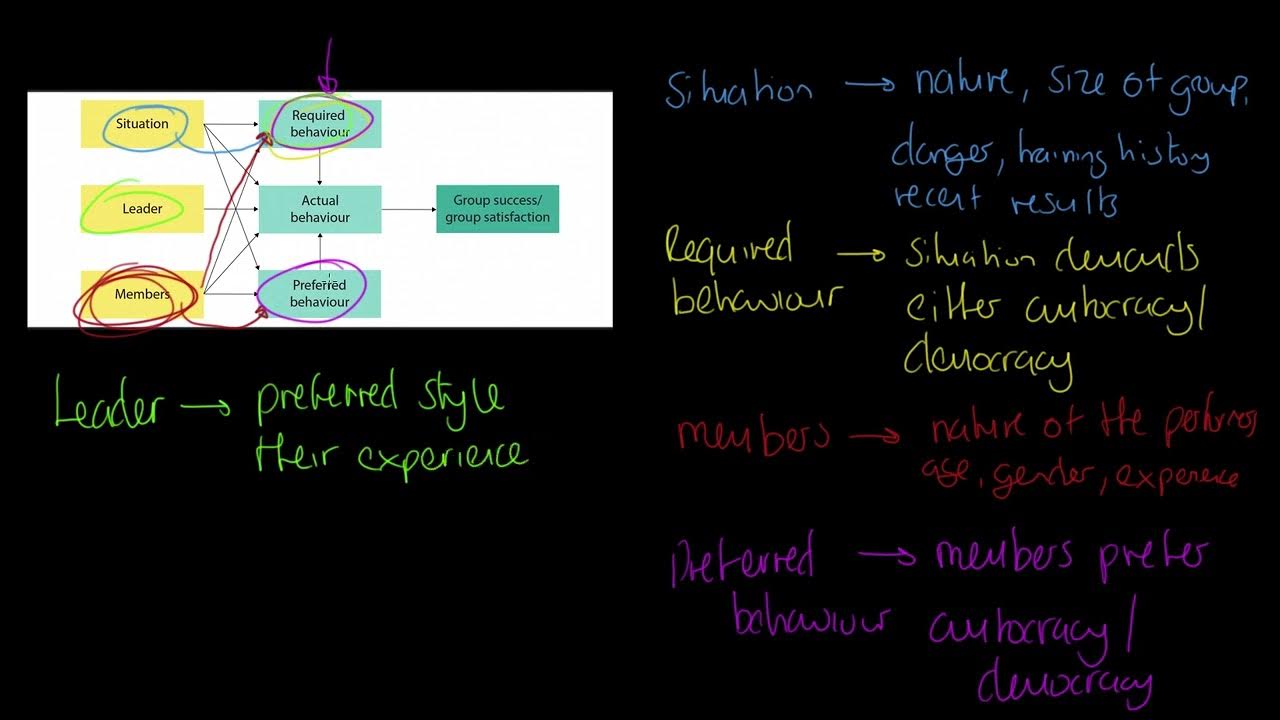 Situation
Required
behaviour
Leader
Actual
behaviour
Group success/
group satisfaction
Members
Preferred
behaviour
Leader → preferred style
their experience
Situation → nature, size of group,
danger, training history
recent results
Required → situation demands
behaviour either autocracy/
democracy
members → nature of the performers
age, gender, experience
Preferred → members prefer
behaviour autocracy/
democracy